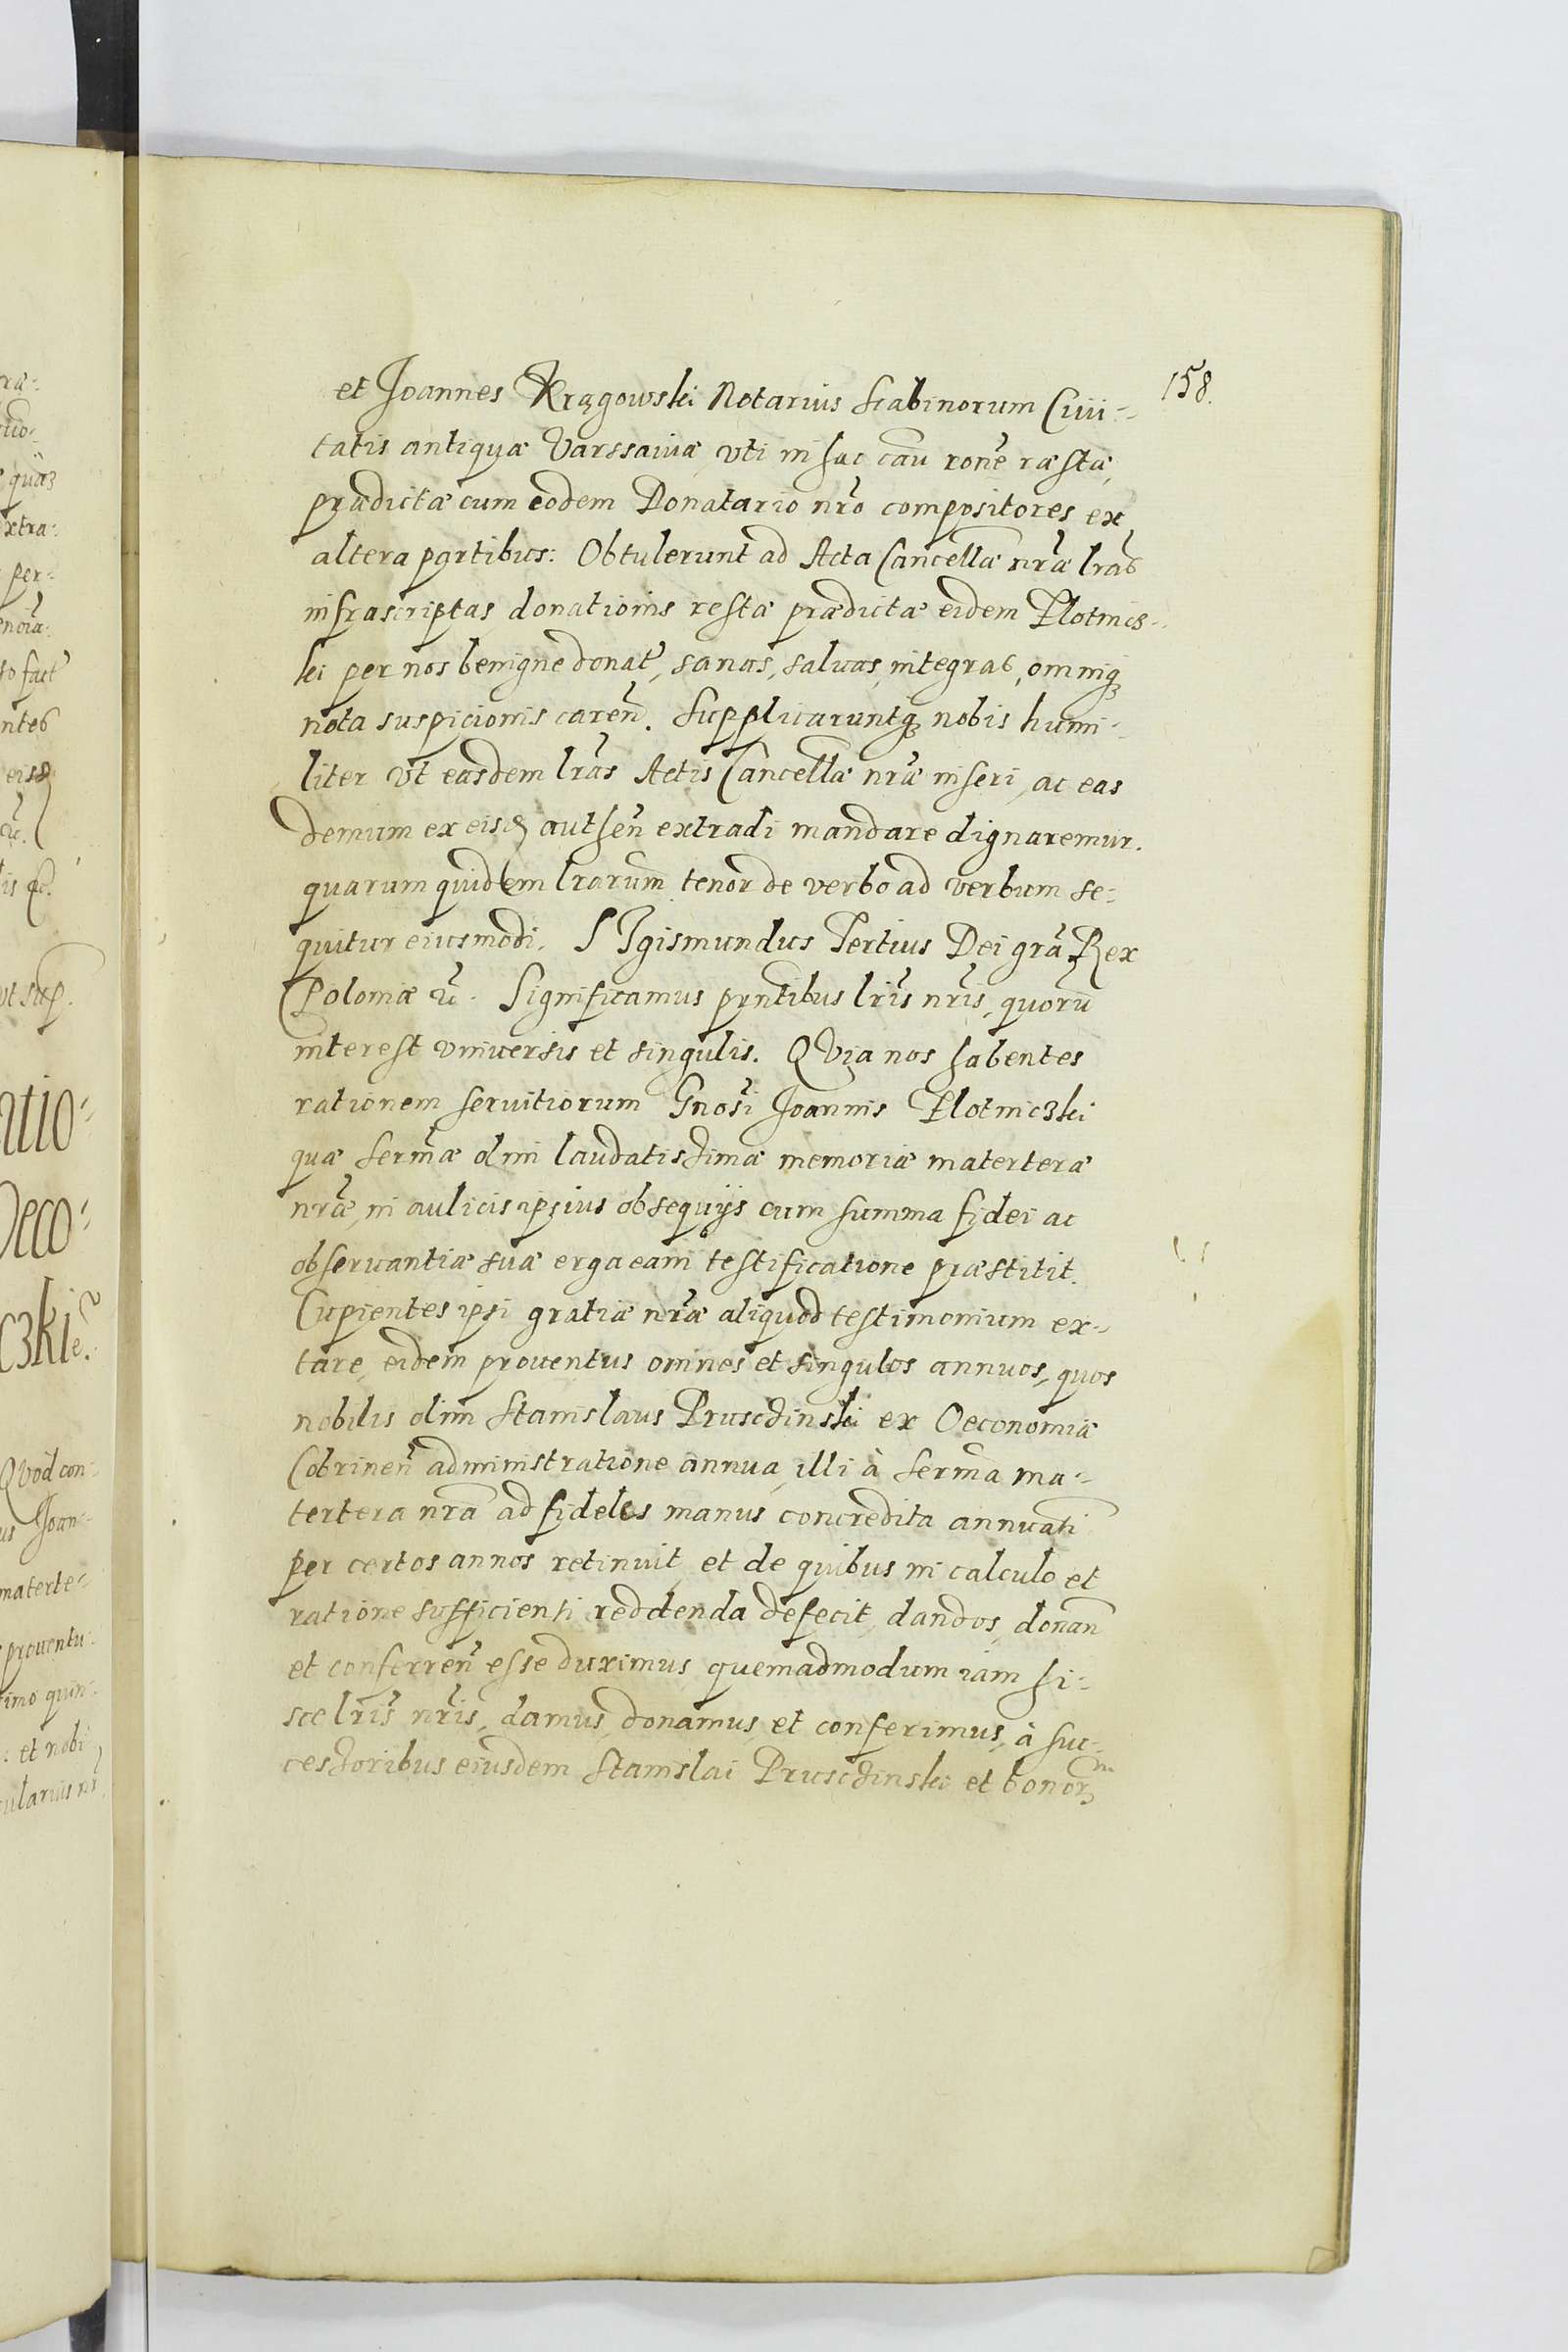 158.
et Joannes Krągowski Notarius Scabinorum Ciui-
tatis antiquæ Varssauiæ, vti in hac cãu rõne ræstæ,
prædictæ cum eodem Donatario nr̃o compositores ex
altera partibus: Obtulerunt ad Acta Cancellæ nr̃æ lr̃as
infrascriptas donationis restæ prædictæ eidem Plotnics-
ki per nos benigne donat̃, sanas, saluas, integras, omniq́
nota suspicionis careñ. Supplicaruntq́ nobis humi-
liter vt easdem lr̃as Actis Cancellæ nr̃æ inseri, ac eas
demum ex eisđ autheñ extradi mandare dignaremur.
quarum quidem lrarum̃ tenor de verbo ad verbum se-
quitur eiusmodi. SIgismundus Tertius Dei grã Rex
Poloniæ &c̃. Significamus pñtibus lr̃is nr̃is, quorũ
interest vniuersis et singulis. QVia nos habentes
rationem seruitiorum Gnosĩ Joannis Plotniczki
quæ Serm̃æ olim laudatissimæ memoriæ materteræ
nr̃æ, in aulicis ipsius obsequijs cum summa fidei ac
obseruantiæ suæ erga eam testificatione præstitit.
Cupientes ipsi gratiæ nr̃æ aliquod testimonium ex-
tare, eidem prouentus omnes et singulos annuos, quos
nobilis olim Stanislaus Prusczinski ex Oeconomiæ
Cobrineñ administratione annua, illi à Serm̃a ma-
tertera nrã ad fideles manus concredita annuatĩ
per certos annos retinuit, et de quibus in calculo et
ratione sufficienti reddenda defecit, dandos, donañ
et conferreñ esse duximus quemadmodum iam hi-
sce lr̃is nr̃is, damus, donamus, et conferimus, à suc-
cessoribus eiusdem Stanislai Prusczinski et bonorm